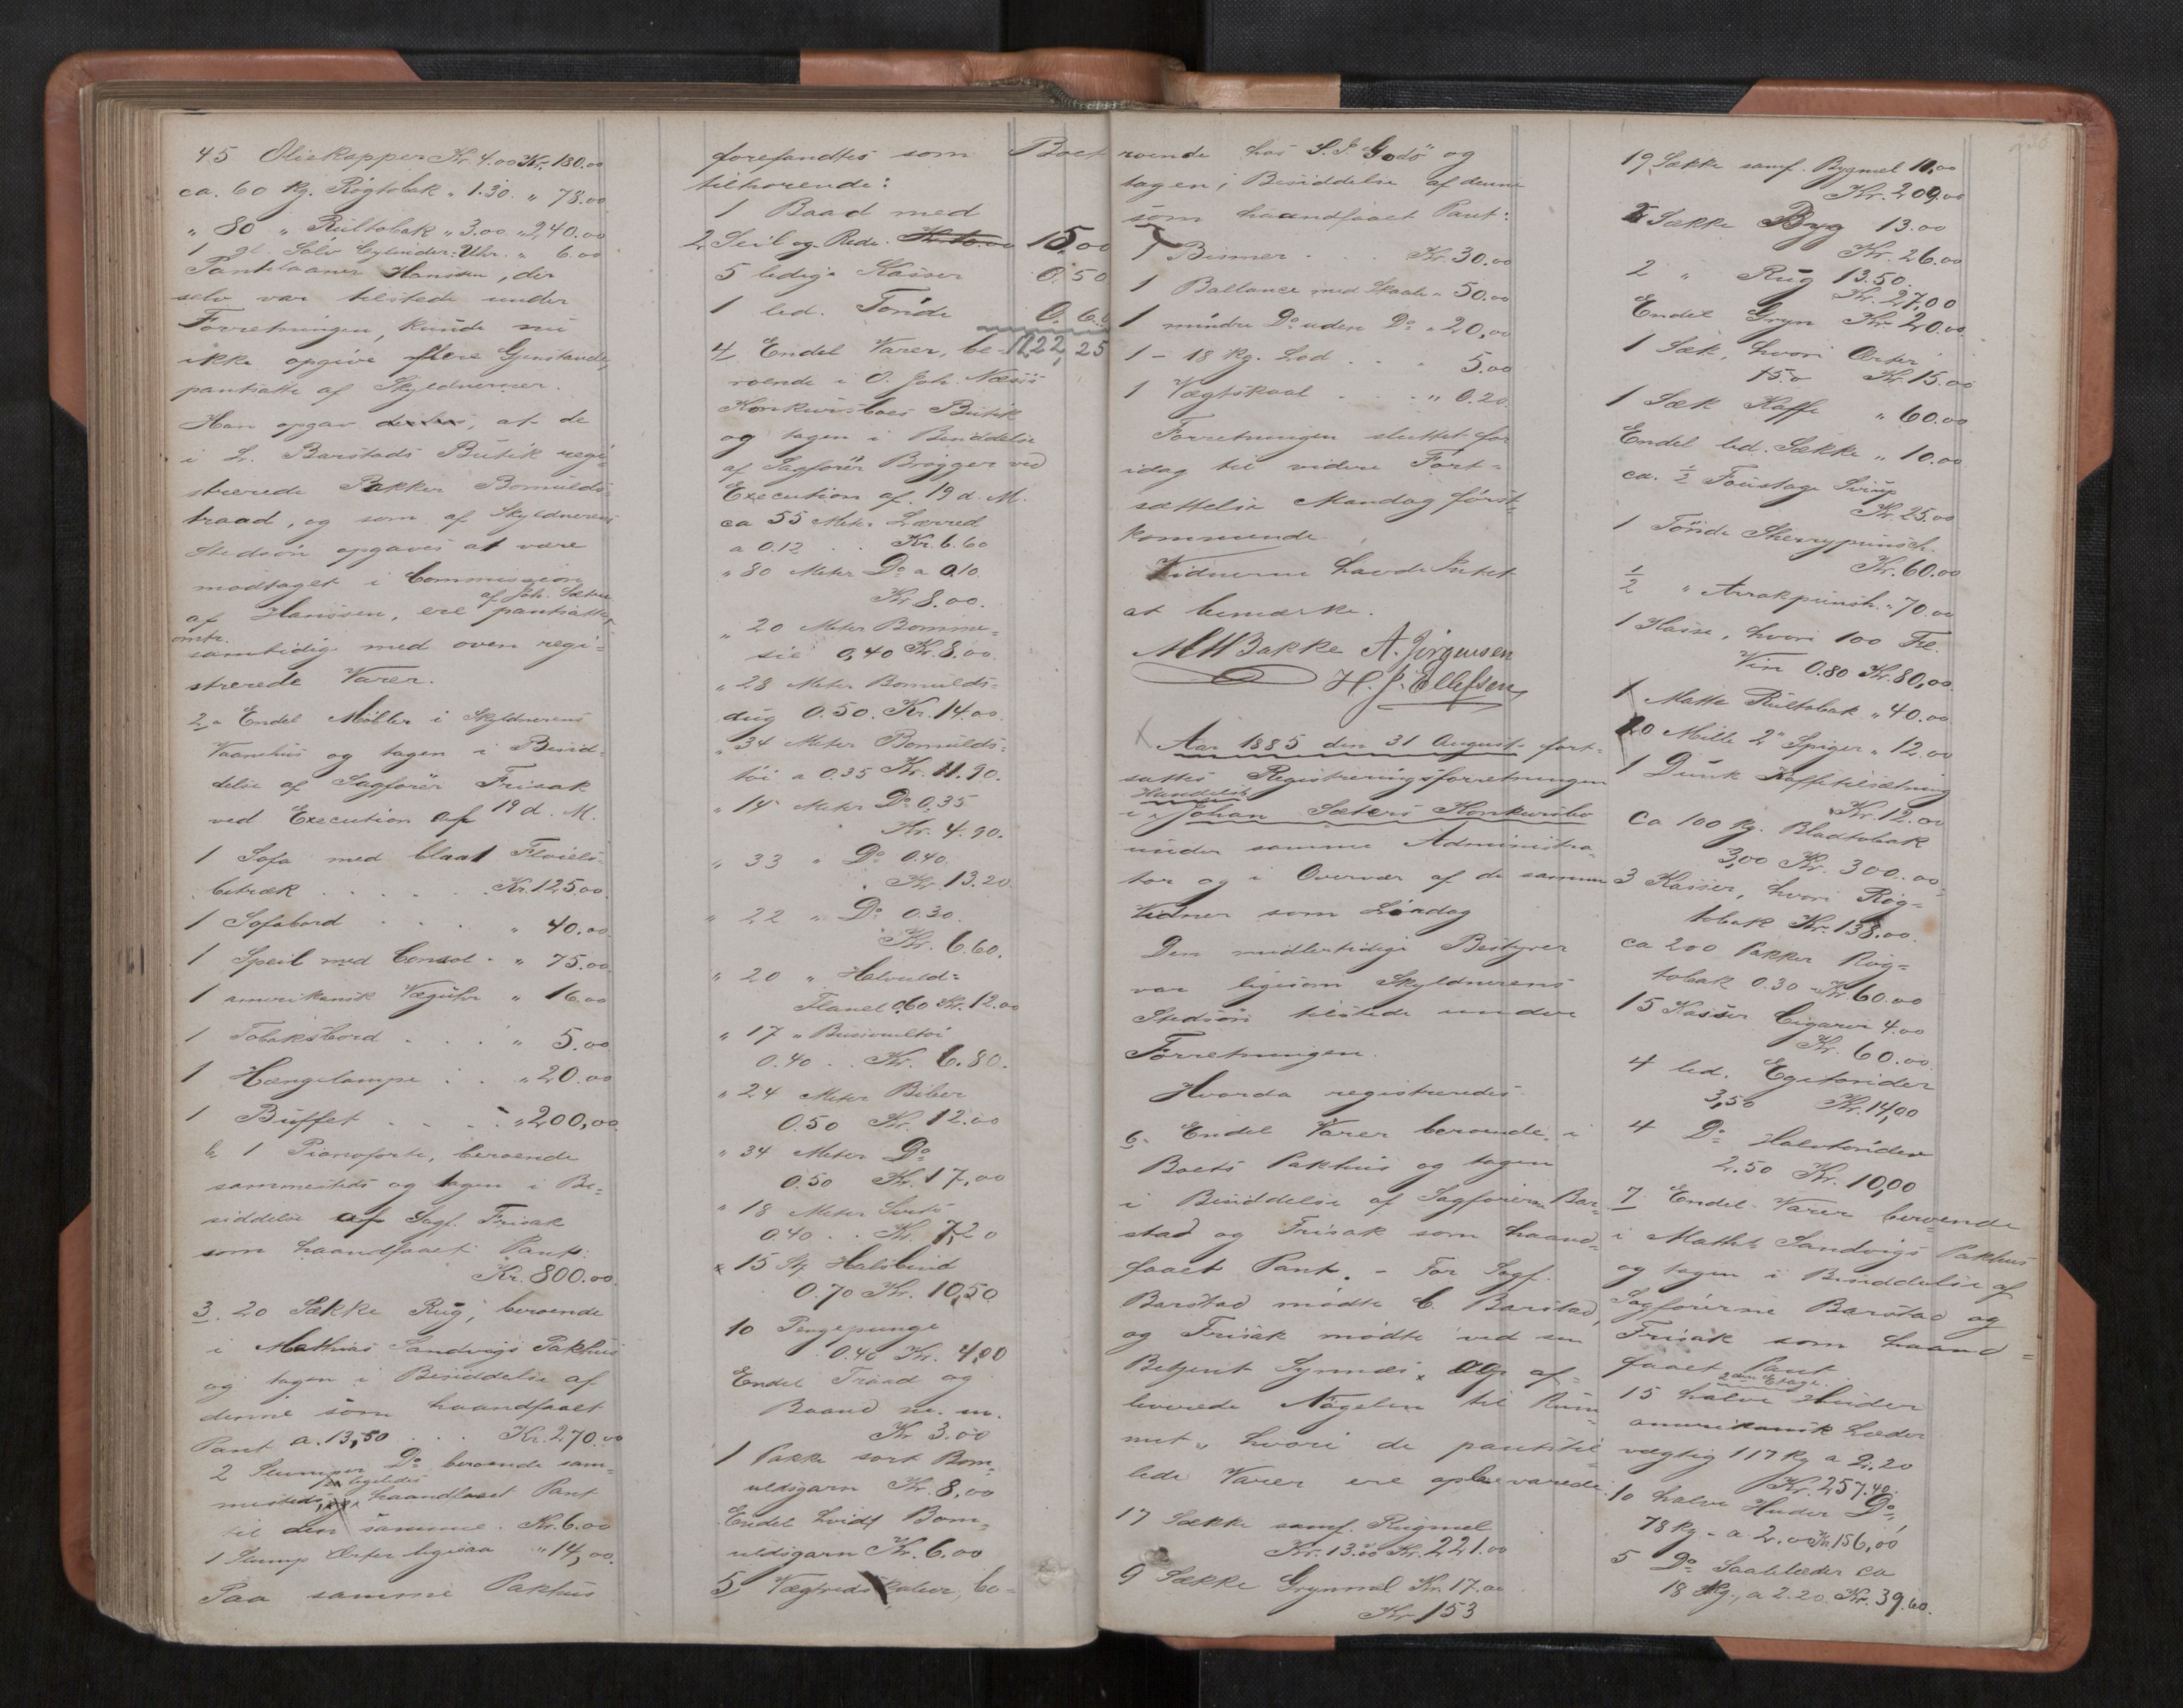 45 Oliekapper Kr. 4.00 Kr. 180.00
ca. 60 Kg. Røgtobak " 1.30 " 78.00
" 80 " Rultobak " 3.00 " 240.00
1 gl. Sølv Cylinder-Uhr. " 6.00
Pantelaaner Hanssen, der
selv var tilstede under
Forretningen, kunde nu
ikke opgive flere Gjenstande,
pantsatte af Skyldneren.
Han opgav, at de
i L. Barstads Butik regi-
strerede Pakker Bomulds-
traad, og som af Skyldnerens
Stedsøn opgaves at være
modtaget i Commission
af Joh. Sæter
af Hanssen, ere pantsatte
omtr.
samtidig med oven regi-
strerede Varer.
2 a Endel Møbler i Skyldnerens
Vaanehus og tagen i Besid-
delse af Sagfører Frisak
ved Execution af 19 d. M.
1 Sofa med blaat Fløiels-
betræk . . . . Kr. 125.00
1 Sofabord . . . " 40.00
1 Speil med Consol . " 75.00
1 amerikansk Væguhr " 16.00
1 Tobaksbord . . . " 5.00
1 Hængelampe . . " 20.00
1 Buffet . . . . " 200,00
b 1 Pianoforte, beroende
sammesteds og tagen i Be-
siddelse af Sagf. Frisak
som haandfaaet Pant:
Kr. 800.00
3. 20 Sække Rug, beroende
i Mathias Sandvigs Pakhus
og tagen i Besiddelse af
denne som haandfaaet
Pant a. 13,50 . . . Kr. 270.00
2 Slumper Do beroende sam-
ligeledes
mesteds, haandfaaet Pant
til den samme. Kr. 6.00
1 Slump Erter ligesaa " 14,00
Paa samme Pakhus
forefandtes som Boet
tilhørende:
1 Baad med
2 Seil og Rede. Kr. 10.00 15,00
5 ledige Kasser 0.50
1 led. Tønde 0.60
1222,25
4. Endel Varer, be-
roende i O. Joh. Næss's
Konkursboes Butik
og tagen i Besiddelse
af Sagfører Brøgger ved
Execution af 19 d. M.
ca 55 Meter Lærred
a 0.12 . . Kr. 6.60
" 80 Meter Do a 0.10
Kr 8.00.
" 20 Meter Bomme-
sie 0,40 Kr. 8.00.
" 28 Meter Bomulds-
dug 0.50. Kr. 14.00.
" 34 Meter Bomulds-
tøi a 0.35 Kr. 11.90.
" 14 Meter Do 0.35
Kr. 4.90.
" 33 " Do 0.40.
Kr. 13.20.
" 22 " Do 0.30.
Kr. 6.60.
" 20 " Halvuld-
Flanel 0.60 Kr. 12.00
" 17 "
0.40 . . Kr. 6.80.
" 24 Meter Biber
0.50 Kr. 12.00
" 34 Meter Do
0.50 Kr. 17,00
" 18 Meter Sirts
0.40 . . Kr. 7,20
x 15 St. Halsbind
0.70 Kr. 10,50
10 Pengepunge
0.40 Kr. 4,00
Endel Traad og
Baand m. m.
Kr 3.00
1 Pakke sort Bom-
uldsgarn Kr. 8,00
Endel hvidt Bom-
uldsgarn Kr. 6.00
5. Vægtredskaber, be-
roende hos S. J. Godø og
tagen i Besiddelse af denne
som haandfaaet Pant:
1 Bismer . . . Kr. 30.00
1 Ballance med Skaaler " 50.00
1 mindre Do uden Do " 20,00
1 - 18 Kg. Lod . . . 5.00
1 Vægtskaal . . . " 0.20.
Forretningen sluttet for
idag til videre Fort-
sættelse Mandag først-
kommende.
Vidnerne havde Intet
at bemærke.
M H Bakke A. Jørgensen
H. J. Ellefsen
Aar 1885 den 31 August fort-
sattes Registreringsforretningen
Handelsb.
i Johan Sæters Konkursbo
under samme Administra-
tor og i Overvær af de samme
Vidner som Lørdag
Den midlertidige Bestyrer
var ligesom Skyldnerens
Stedsøn tilstede under
Forretningen.
Hvorda registreredes
6. Endel Varer beroende i
Boets Pakhus og tagen
i Besiddelse af Sagførerne Bar-
stad og Frisak som haand-
faaet Pant. - For Sagf.
Barstad mødte C. Barstad,
og Frisak mødte ved sin
Betjent Synnæs, og af-
leverede Nøgelen til Rum-
met, hvori de pantstil-
lede Varer ere opbevarede.
17 Sække samf. Rugmel
Kr. 13.00 Kr. 221.00
9 Sække Grynmel Kr. 17.00
Kr 153
19 Sække samf. Bygmel 11.00
Kr. 209.00
2 Sække Byg 13.00
Kr. 26.00
2 " Rug 13.50.
Kr. 27,00
Endel Gryn Kr. 20.00
1 Sæk, hvori Erter
15.0 Kr. 15.00
1 Sæk Kaffe " 60.00
Endel led. Sække " 10.00
ca. 1/2 Foustage Sirup
Kr. 25.00
1 Tønde Sherrypunsch.
Kr. 60.00
1/2 " Arrakpunsch. " 70.00
1 Kasse, hvori 100 Fl.
Vin 0.80 Kr. 80,00
1 Matte Rultobak " 40.00
20 Mille 2" Spiger " 12.00
1 Dunk Kaffetilsætning
Kr. 12.00
Ca 100 Kg. Bladtobak
3,00 Kr. 300.00
3 Kasser, hvori Røg-
tobak Kr. 138.00.
ca 200 Pakker Røg-
tobak 0.30 Kr. 60.00
15 Kasser Cigarer 4.00
Kr. 60.00
4 led. Egetønder
3,50 Kr. 14,00
4 Do Halvtønder
2.50 Kr. 10,00
7. Endel Varer beroende
i Maths Sandvigs Pakhus
og tagen i Besiddelse af
Sagførerne Barstad og
Frisak som haand-
faaet Pant.
2den Etage.
15 halve Huder
amerikansk Læder
vægtig 117 Kg a 2.20
Kr. 257.40.
10 halve Huder Do,
78 Kg. a 2.00 Kr 156,00
5 Do Saalelæder ca
18 Kg., a 2.20. Kr. 39.60.